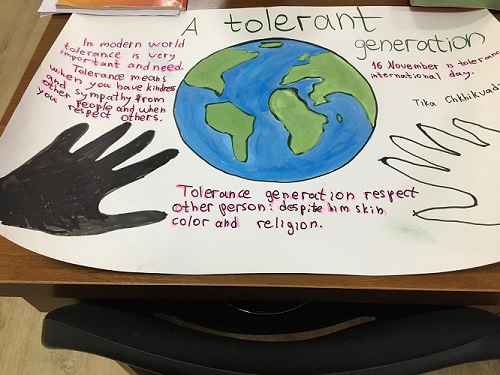 A tolerant
generation
In modern world
tolerance is very
important and need.
Tolerance means
when you have kindness
and sympathy from
other people and when
you respect others.
16 November is tolerance
international day.
Tika
Tolerance generation respect
other person: despite him skin
color and religion.